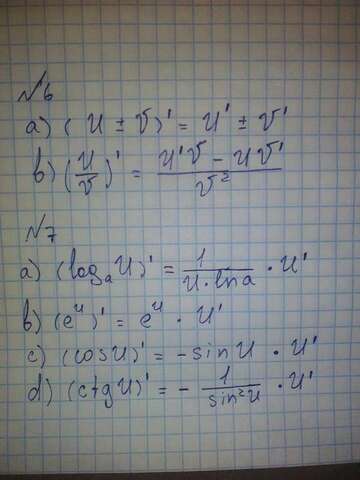 №6
a) (U ± V)' = U' ± V'
b) (U/V)' = (U'V - UV')/V²
№7
a) (logₐU)' = 1/(U·lna) · U'
b) (eᵘ)' = eᵘ · U'
c) (cosU)' = -sinU · U'
d) (ctgU)' = - 1/(sin²U) · U'